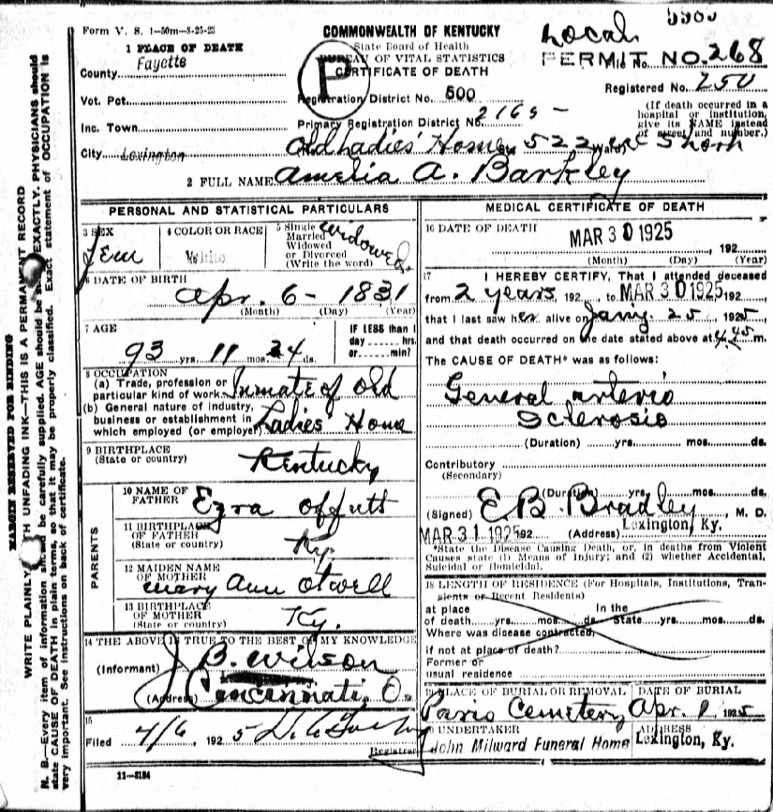 5503
Form V. S. 1—50m—8-25-23
COMMONWEALTH OF KENTUCKY
Local
1 PLACE OF DEATH
State Board of Health
PERMIT NO. 268
Fayette
BUREAU OF VITAL STATISTICS
County
P
CERTIFICATE OF DEATH
Registered No. 250
Vot. Pct.
Registration District No. 500
(If death occurred in a hospital or institution, give its NAME instead of street and number.)
Inc. Town
Primary Registration District No. 2165 -
City Lexington
Old Ladies' Home 522 Short
2 FULL NAME Amelia A. Barkley
PERSONAL AND STATISTICAL PARTICULARS
3 SEX
Fem
4 COLOR OR RACE
White
5 Single
Married
Widowed
or Divorced
(Write the word)
Widowed.
6 DATE OF BIRTH
Apr. 6 - 1831
(Month) (Day) (Year)
7 AGE
93 yrs. 11 mos. 24 ds.
IF LESS than 1
day ...... hrs.
or ...... min?
8 OCCUPATION
(a) Trade, profession or
particular kind of work Inmate of Old
(b) General nature of industry,
business or establishment in
which employed (or employer) Ladies' Home
9 BIRTHPLACE
(State or country)
Kentucky
PARENTS
10 NAME OF
FATHER
Ezra Offutt
11 BIRTHPLACE
OF FATHER
(State or country)
Ky.
12 MAIDEN NAME
OF MOTHER
Mary Ann Otwell
13 BIRTHPLACE
OF MOTHER
(State or country)
Ky.
14 THE ABOVE IS TRUE TO THE BEST OF MY KNOWLEDGE
(Informant) J. B. Wilson
(Address) Cincinnati, O.
15
Filed 4/6, 1925
Registrar
11—3184
MEDICAL CERTIFICATE OF DEATH
16 DATE OF DEATH
MAR 30 1925, 192
(Month) (Day) (Year)
17 I HEREBY CERTIFY, That I attended deceased
from 2 years, 192, to MAR 30 1925, 192,
that I last saw her alive on Jany. 25, 1925
and that death occurred on the date stated above at 4:45 m.
The CAUSE OF DEATH* was as follows:
General arterio
Sclerosis
(Duration) yrs. mos. ds.
Contributory
(Secondary)
(Duration) yrs. mos. ds.
(Signed) E. B. Bradley, M. D.
MAR 31 1925 192 (Address) Lexington, Ky.
*State the Disease Causing Death, or, in deaths from Violent
Causes state (1) Means of Injury; and (2) whether Accidental,
Suicidal or Homicidal.
18 LENGTH OF RESIDENCE (For Hospitals, Institutions, Tran-
sients or Recent Residents)
at place In the
of death yrs. mos. ds. State yrs. mos. ds.
Where was disease contracted,
if not at place of death?
Former or
usual residence
19 PLACE OF BURIAL OR REMOVAL
Paris Cemetery
DATE OF BURIAL
Apr. 1, 1925
20 UNDERTAKER
John Milward Funeral Home
ADDRESS
Lexington, Ky.
MARGIN RESERVED FOR BINDING
WRITE PLAINLY WITH UNFADING INK—THIS IS A PERMANENT RECORD
N. B.—Every item of information should be carefully supplied. AGE should be stated EXACTLY. PHYSICIANS should
state CAUSE OF DEATH in plain terms, so that it may be properly classified. Exact statement of OCCUPATION is
very important. See instructions on back of certificate.